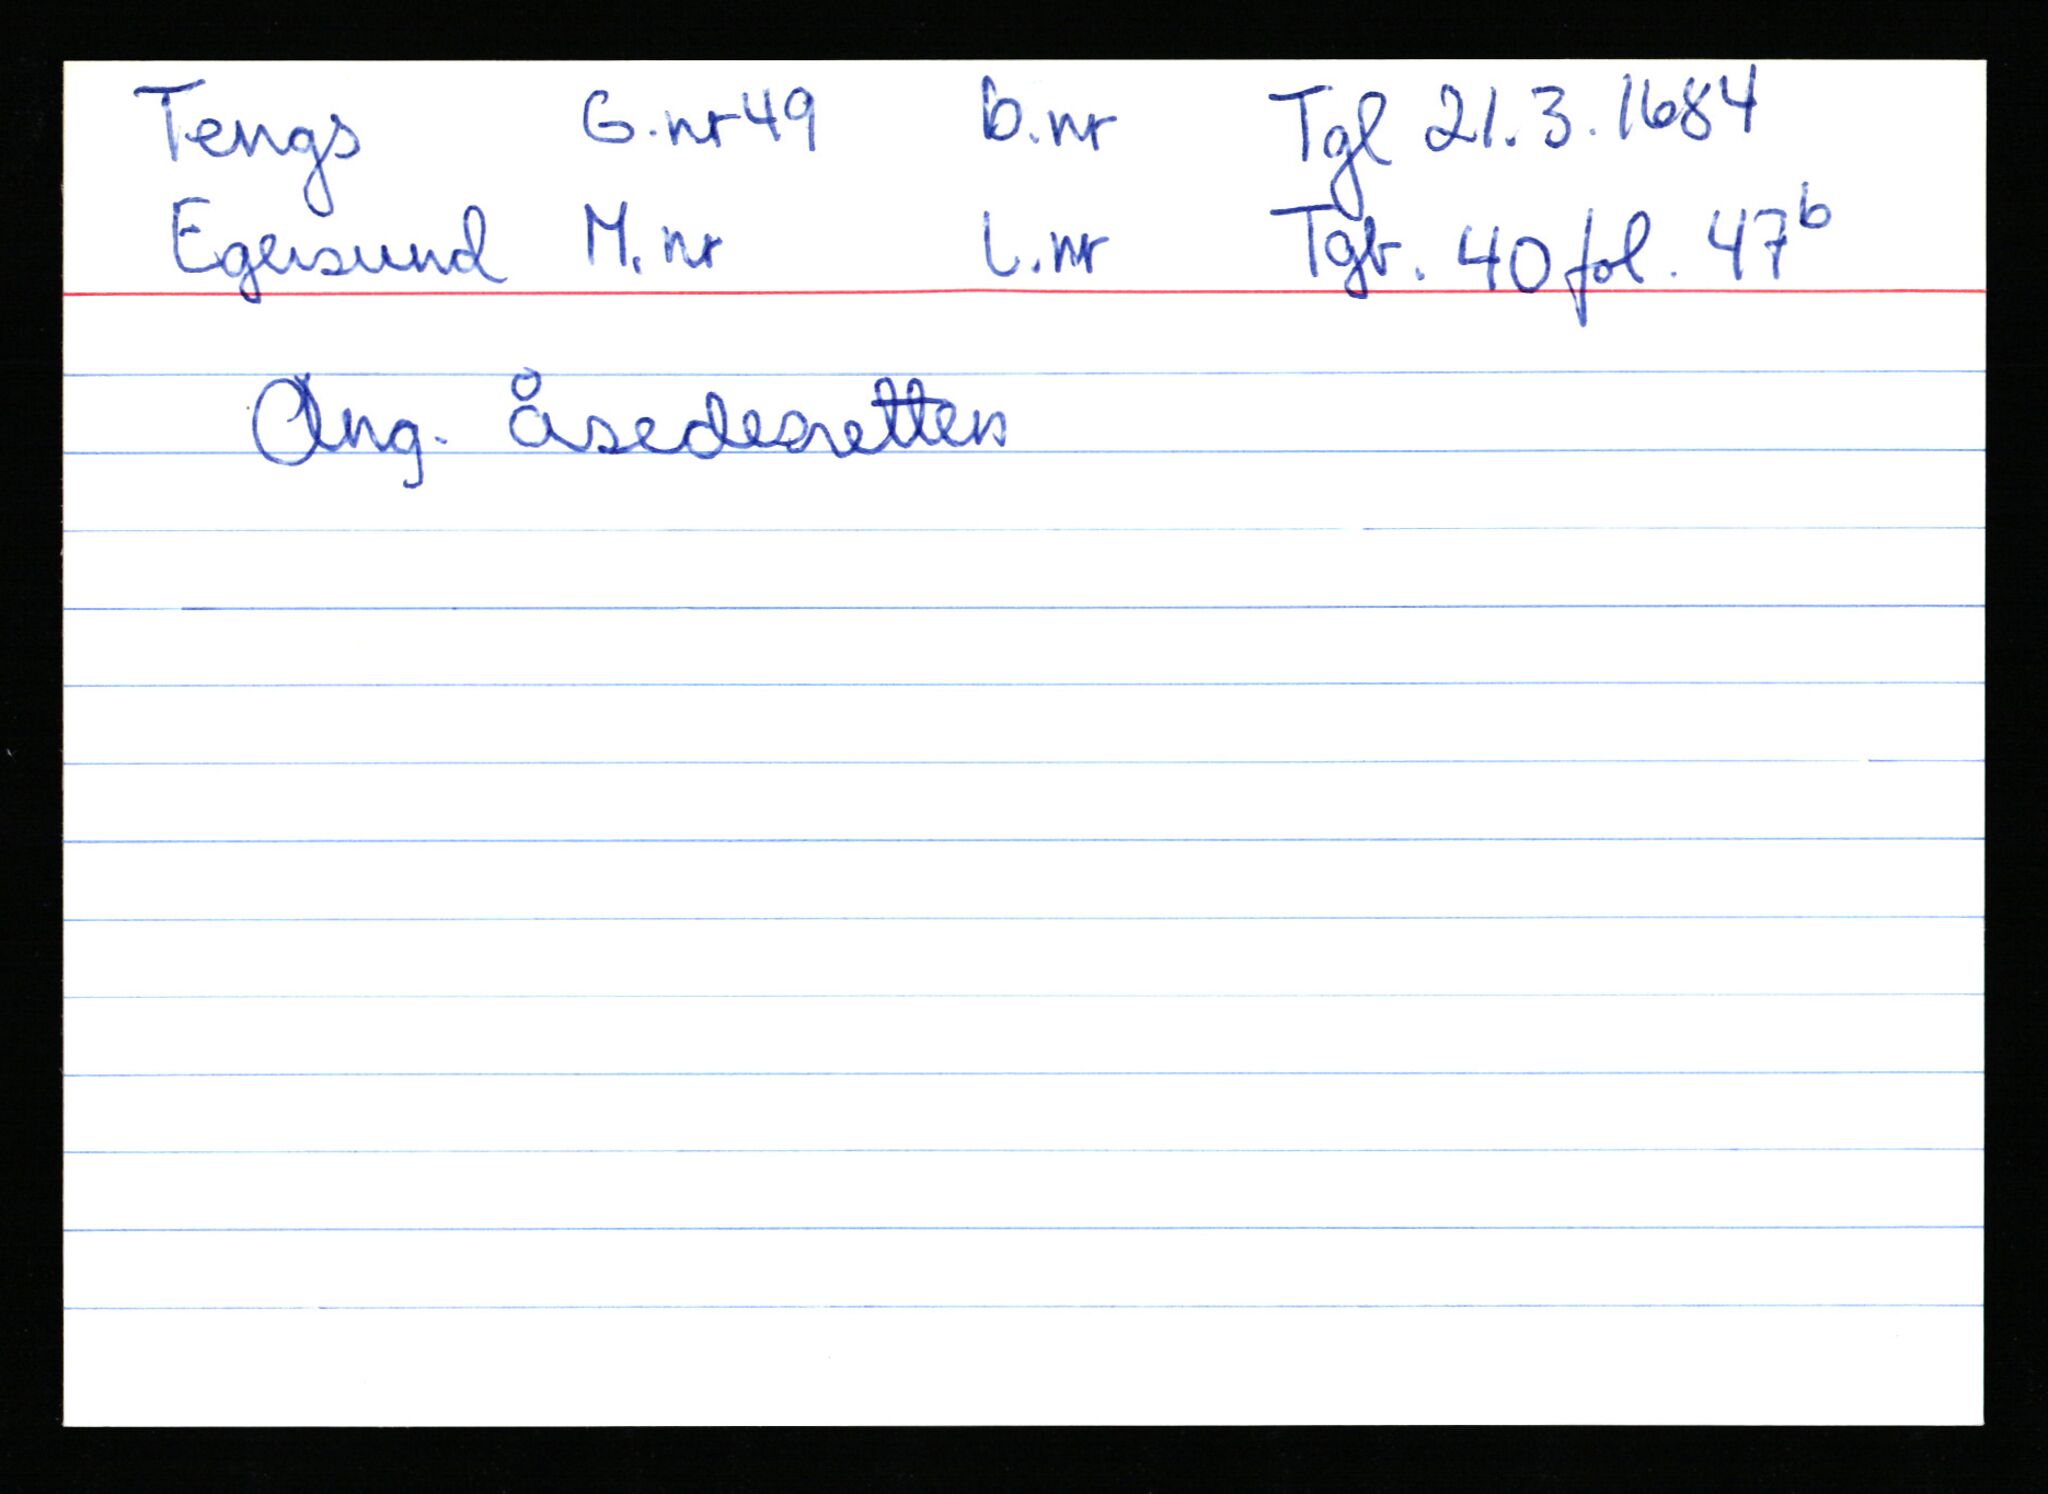 Tengs G.nr 49 b.nr Tgl 21.3.1684
Egersund M.nr L.nr Tgb. 40 fol. 47b
Ang. åsedesretten